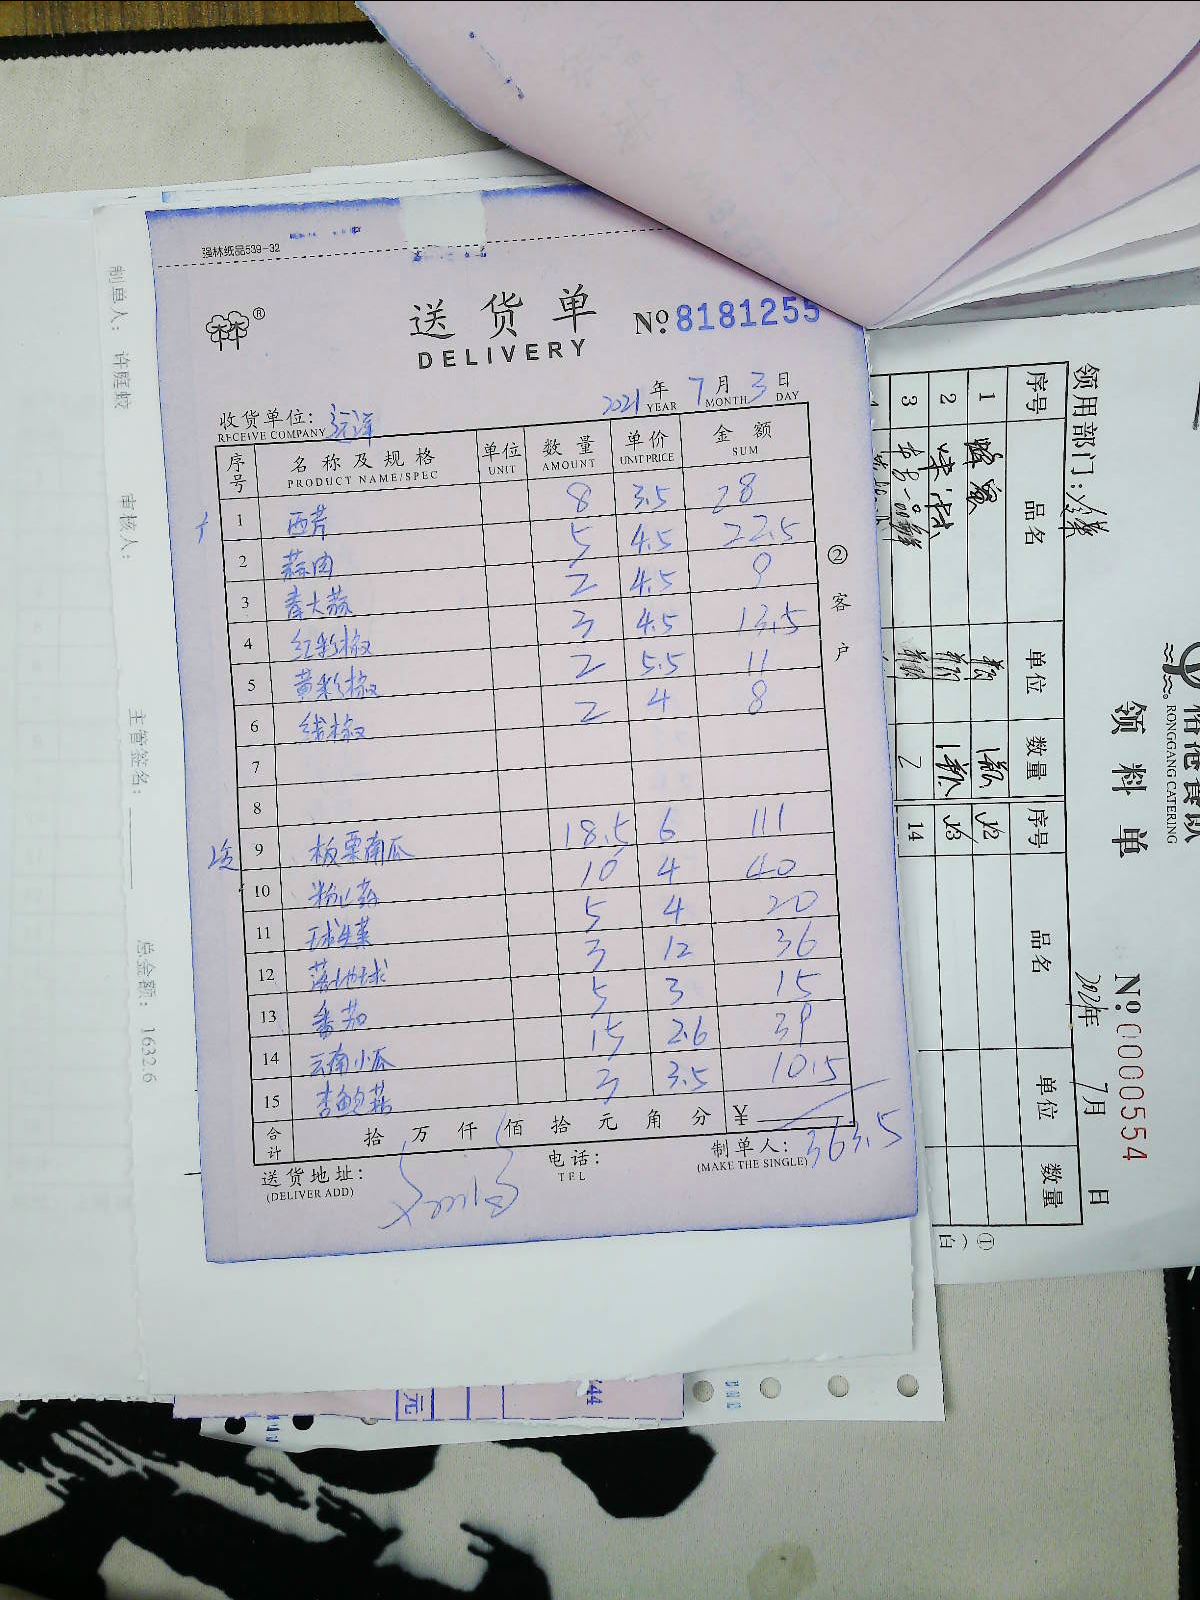 强林纸品539-32
送货单
DELIVERY
№ 8181255
2021年 7月 3日
YEAR MONTH DAY
收货单位: 远洋
RECEIVE COMPANY
序号 名称及规格 单位 数量 单价 金额
PRODUCT NAME/SPEC UNIT AMOUNT UNIT PRICE SUM
1 西芹 8 3.5 28
2 蒜肉 5 4.5 22.5
3 青大蒜 2 4.5 9
4 红彩椒 3 4.5 13.5
5 黄彩椒 2 5.5 11
6 线椒 2 4 8
7
8
9 板栗南瓜 18.5 6 111
10 10 4 40
11 球生菜 5 4 20
12 落地球 3 12 36
13 番茄 5 3 15
14 云南小瓜 15 2.6 39
15 杏鲍菇 3 3.5 10.5
合计 拾 万 仟 佰 拾 元 角 分 ¥ 363.5
送货地址: 电话: 制单人:
(DELIVER ADD) TEL (MAKE THE SINGLE)
②客户
制单人: 许庭蛟
审核人:
主管签名:
总金额: 1632.6
RONGGANG CATERING
领料单
№ 0000554
领用部门:
2021年 7月 日
序号 品名 单位 数量 序号 品名 单位 数量
1 蜂蜜 1瓶 12
2 1瓶 13
3 2 14
①
白
元